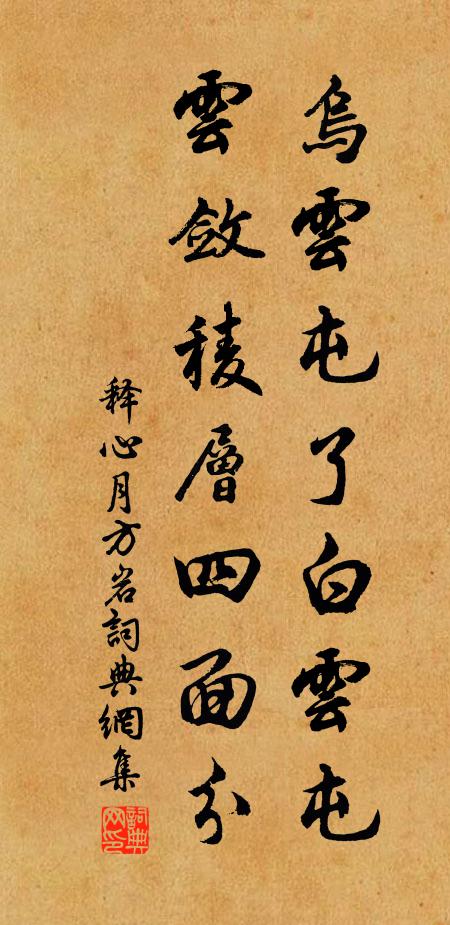 烏雲屯了白雲屯
雲斂稜層四面分
释心月方岩詞典網集
詞典
网印